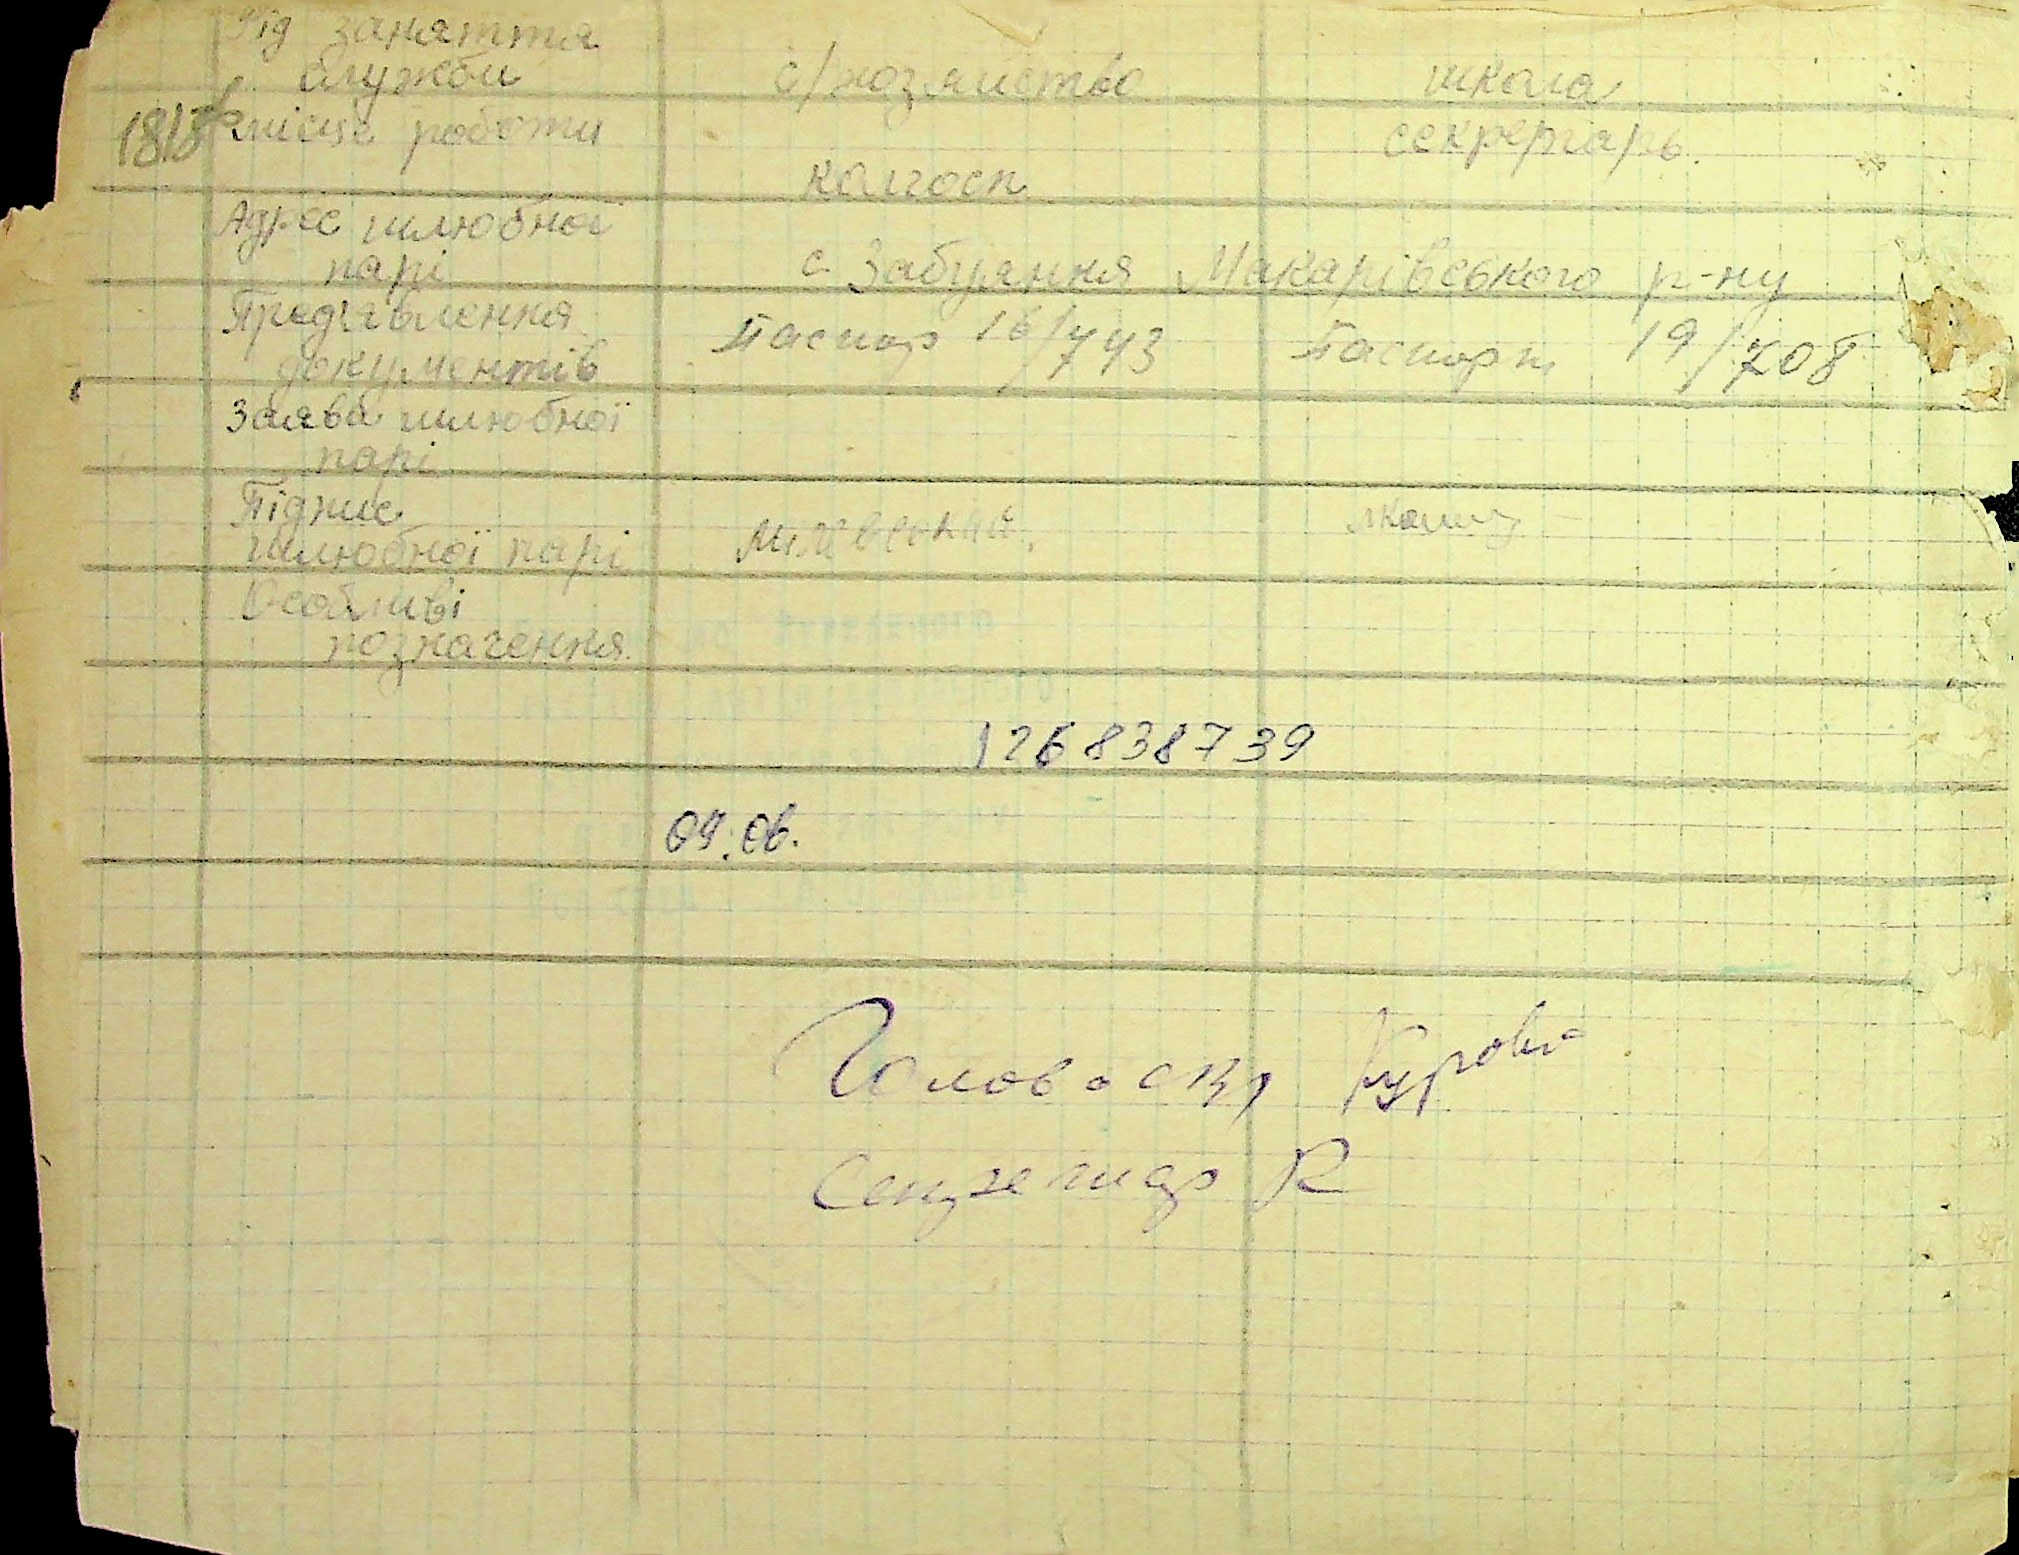 Рід заняття
служби
с/хозяйство
школа
місце роботи
секрертарь.
колгосп
Адрес шлюбної
парі
с. Забуяння Макарівського р-ну
Предгявлення
документів
Паспор 16/743
Паспорт 19/708
Заява шлюбної
парі
Підпис
шлюбної парі
Особливі
позначення.
126838739
04.06.
Голова с/р
Секретар